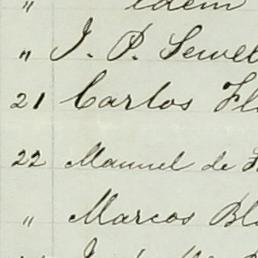 " idem
" J. P. Sewel
21 Carlos Fl
22 Manuel de F
" Marcos Bl